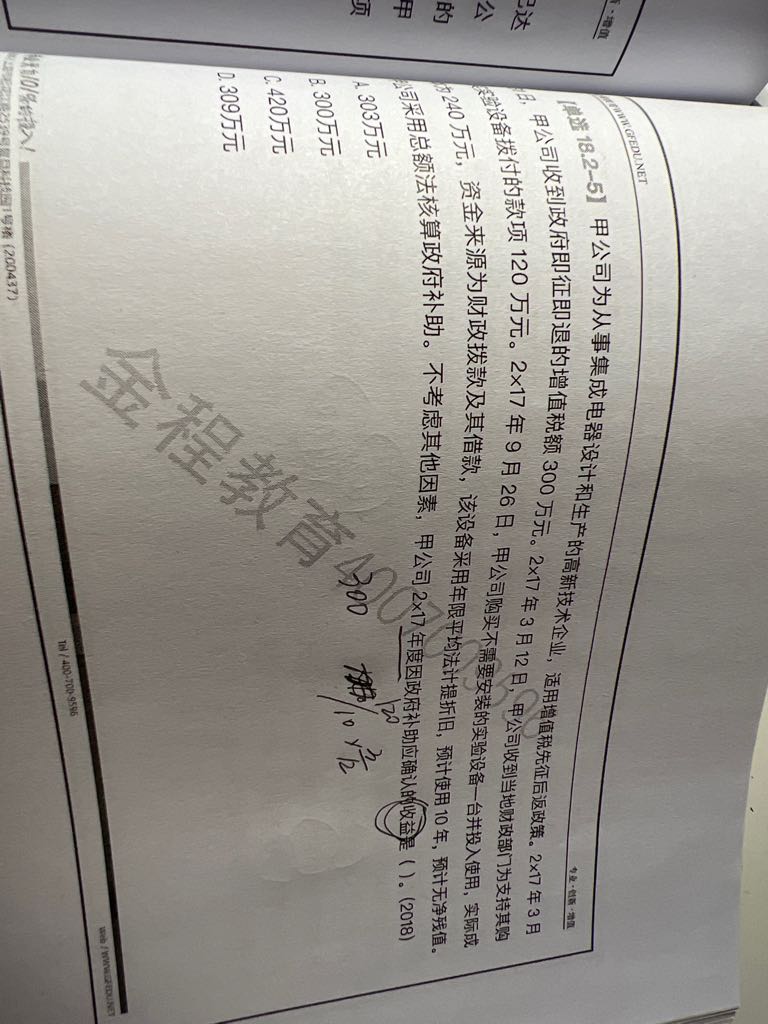 ·增值
已达
公
的
甲
项
WWW.GFEDU.NET
专业·创新·增值
【单选 18.2-5】 甲公司为从事集成电器设计和生产的高新技术企业,适用增值税先征后返政策。2×17 年 3 月
日,甲公司收到政府即征即退的增值税额 300 万元。2×17 年 3 月 12 日,甲公司收到当地财政部门为支持其购
实验设备拨付的款项 120 万元。2×17 年 9 月 26 日,甲公司购买不需要安装的实验设备一台并投入使用,实际成
为 240 万元,资金来源为财政拨款及其借款,该设备采用年限平均法计提折旧,预计使用 10 年,预计无净残值。
公司采用总额法核算政府补助。不考虑其他因素,甲公司 2×17 年度因政府补助应确认的收益是( )。(2018)
A. 303万元
B. 300万元
C. 420万元
D. 309万元
300
120
/10 × 3/12
金程教育4007009596
Tel / 400-700-9596
Web / WWW.GFEDU.NET
1号楼 (200437)